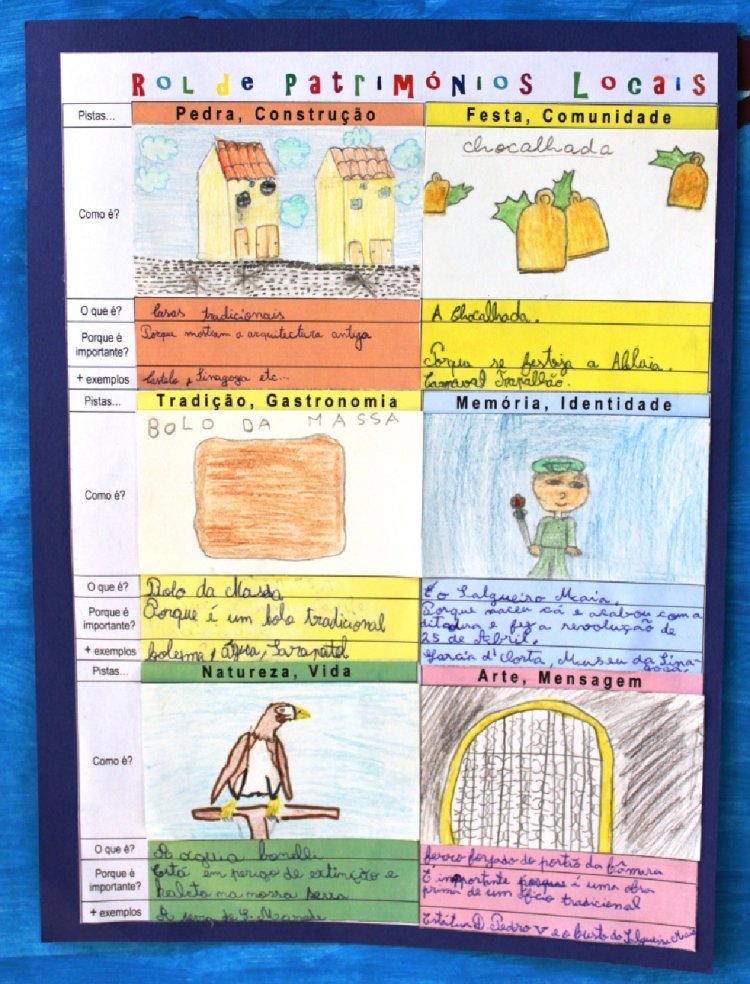 Rol de Patrimónios Locais
Pistas...
Pedra, Construção
Festa, Comunidade
Como é?
chocalhada
O que é?
Casas tradicionais
A Chocalhada.
Porque é importante?
Porque mostram a arquitectura antiga
Porque se festeja a Alluia.
+ exemplos
Castelo, Sinagoga etc...
Carnaval Trapalhão.
Pistas...
Tradição, Gastronomia
Memória, Identidade
Como é?
BOLO DA MASSA
O que é?
Bolo da Massa
É o Salgueiro Maia.
Porque é importante?
Porque é um bolo tradicional
Porque nasceu cá e acabou com a
ditadura e fez a revolução de
25 de Abril.
+ exemplos
boleima, Água, Sarapatel
Garcia d'Orta, Museu da Sina-
goga.
Pistas...
Natureza, Vida
Arte, Mensagem
Como é?
O que é?
A águia bonelli
ferro forjado do portão da Câmara
Porque é importante?
Está em perigo de extinção e
habita na nossa serra
É importante porque é uma obra
prima de um ofício tradicional
+ exemplos
A serra de S. Mamede
Estátua D. Pedro V e o busto de Salgueiro Maia